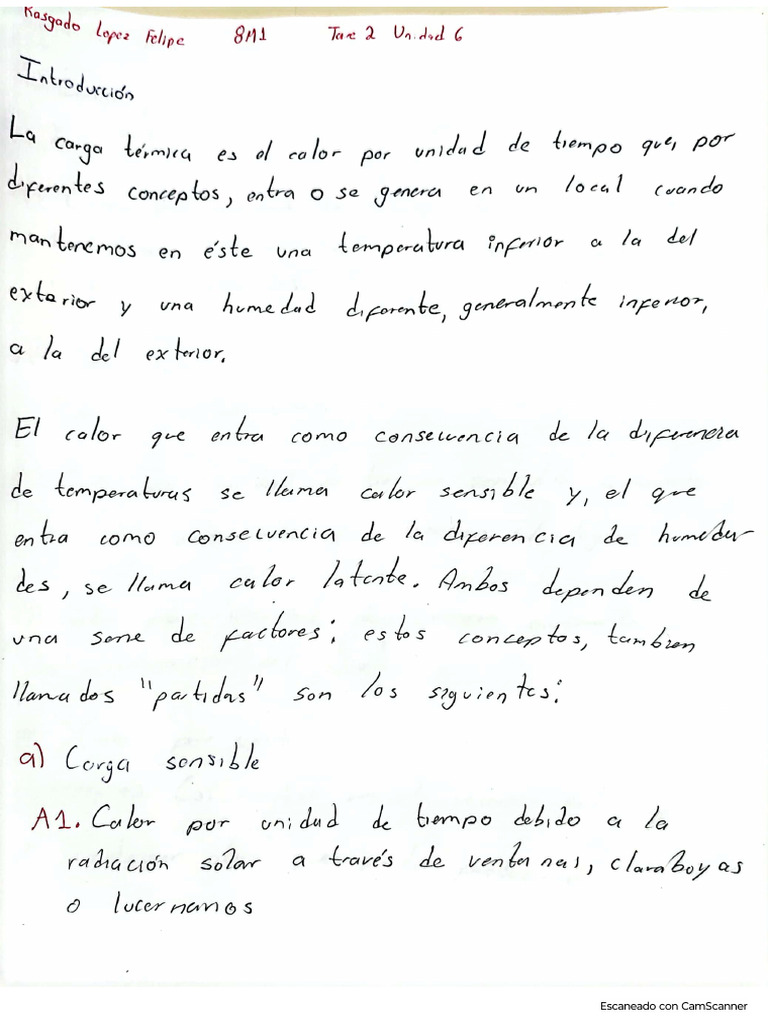 Rasgado Lopez Felipe 8M1 Tare 2 Unidad 6
Introducción
La carga térmica es el calor por unidad de tiempo que, por
diferentes conceptos, entra o se genera en un local cuando
mantenemos en éste una temperatura inferior a la del
exterior y una humedad diferente, generalmente inferior,
a la del exterior.
El calor que entra como consecuencia de la diferencia
de temperaturas se llama calor sensible y, el que
entra como consecuencia de la diferencia de humeda
des, se llama calor latente. Ambos dependen de
una serie de factores; estos conceptos, tambien
llamados "partidas" son los siguientes:
a) Carga sensible
A1. Calor por unidad de tiempo debido a la
radiación solar a través de ventanas, claraboyas
o lucernarios
Escaneado con CamScanner